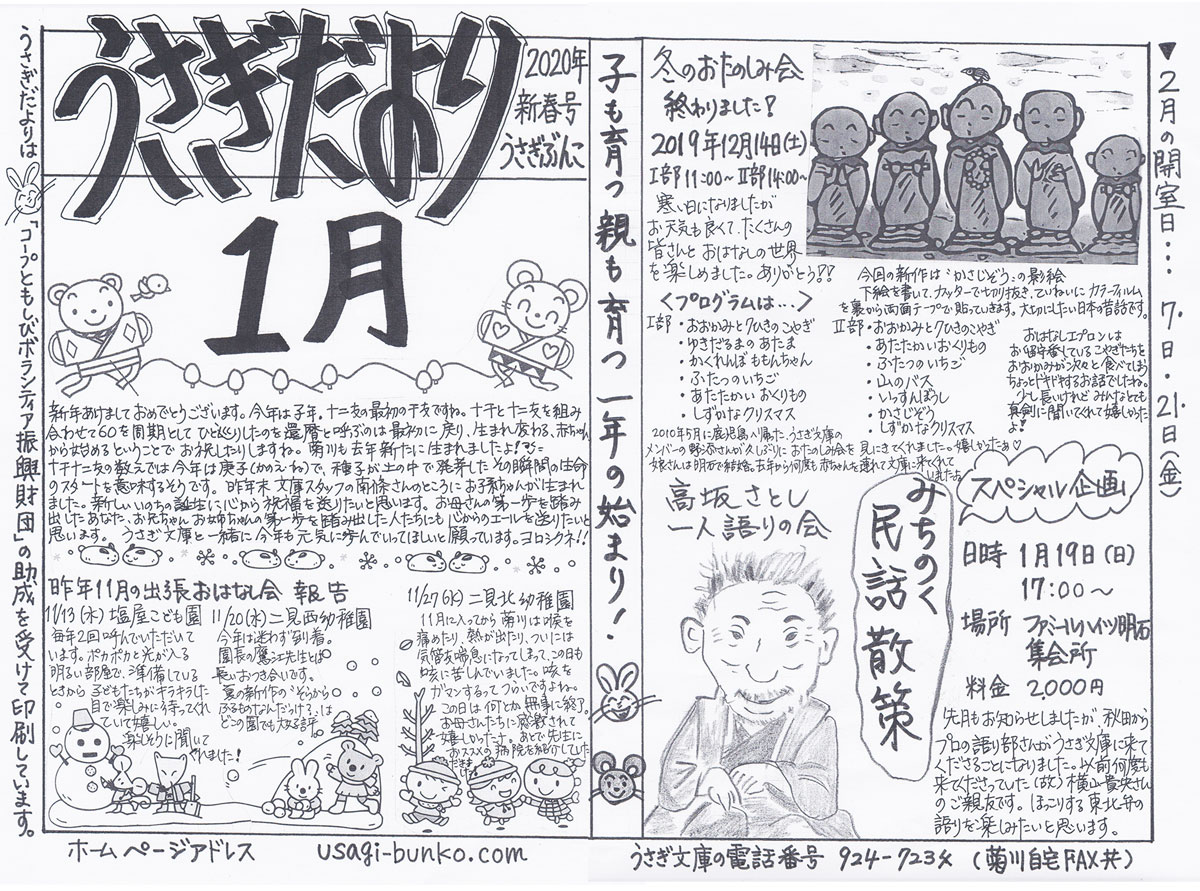 うさぎだより
2020年
新春号
うさぎぶんこ
1月
うさぎだよりは「コープともしびボランティア振興財団」の助成を受けて印刷しています。
新年あけましておめでとうございます。今年は子年。十二支の最初の干支ですね。十干と十二支を組み
合わせて60を周期として ひと巡りしたのを還暦と呼ぶのは最初に戻り、生まれ変わる、赤ちゃん
から始めるということで お祝しますね。菊川も去年新たに生まれましたよ!
十干十二支の数えでは今年は庚子(かのえね)で、種子が土の中で発芽した その瞬間の生命
のスタートを意味するそうです。昨年末 文庫スタッフの南條さんのところにお子ちゃんが生まれ
ました。新しいいのちの誕生に心から祝福を送りたいと思います。お母さんの第一歩を踏み
出したあなた、お兄ちゃん お姉ちゃんの第一歩を踏み出した人たちにも心からのエールを送りたいと
思います。 うさぎ文庫と一緒に今年も元気に歩んでいってほしいと願っています。ヨロシクネ!!
昨年11月の出張おはなし会 報告
11/13(水)塩屋こども園
毎年2回呼んでいただいて
います。ポカポカと光が入る
明るい部屋で、準備している
ときから子どもたちがキラキラした
目で楽しみに待ってくれ
ていて嬉しい。
楽しそうに聞いて
くれました!
11/20(水)二見西幼稚園
今年は迷わず到着。
園長の鷹江先生とは
長いおつき合いです。
夏の新作の"そらから
ふるものなんだっけ?"は
どこの園でも大好評。
11/27(水)二見北幼稚園
11月に入ってから菊川は喉を
痛めたり、熱が出たり、ついには
気管支喘息になってしまって、この日も
咳に苦しんでいました。咳を
ガマンするって つらいですよね。
この日は何とか無事に終了。
お母さんたちに感激されて
嬉しかった。あとで先生に
おススメの病院を紹介していた
だきました。
ホームページアドレス usagi-bunko.com
子も育つ 親も育つ 一年の始まり!
冬のおたのしみ会
終わりました!
2019年12月14日(土)
Ⅰ部11:00~ Ⅱ部14:00~
寒い日になりましたが
お天気も良くて、たくさんの
皆さんと おはなしの世界
を楽しめました。ありがとう!!
今回の新作は"かさじぞう"の影絵
下絵を書いて、カッターで切り抜き、ていねいに カラーフィルム
を裏から両面テープで貼っていきます。大切にしたい日本の昔話です。
<プログラムは…>
Ⅰ部
・おおかみと7ひきのこやぎ
・ゆきだるまの あたま
・かくれんぼ ももんちゃん
・ふたつのいちご
・あたたかい おくりもの
・しずかなクリスマス
Ⅱ部
・おおかみと7ひきのこやぎ
・あたたかいおくりもの
・ふたつの いちご
・山のバス
・いっすんぼうし
・かさじぞう
・しずかなクリスマス
おはなしエプロンは
お留守番しているこやぎたちを
おおかみが次々と食べてしまう
ちょっとドキドキするお話でしたね。
少し長いけれど みんなとても
真剣に聞いてくれて嬉しかった
よ!
2010年5月に鹿児島へ帰った、うさぎ文庫の
メンバーの野添さんが久しぶりに おたのしみ会を 見にきてくれました。嬉しかったあ♡
妹さんは明石で結婚。去年から何度も赤ちゃんを連れて文庫に来てくれて
いましたよ
高坂さとし
一人語りの会
みちのく
民話散策
スペシャル企画
日時 1月19日(日)
17:00~
場所 ファミールハイツ明石
集会所
料金 2,000円
先月もお知らせしましたが、秋田から
プロの語り部さんがうさぎ文庫に来て
くださることになりました。以前何度も
来てくださっていた(故)横山貴央さん
のご親友です。ほっこりする東北弁の
語りを楽しみたいと思います。
▼2月の開室日… 7日・21日(金)
うさぎ文庫の電話番号 924-7234 (菊川自宅FAX共)